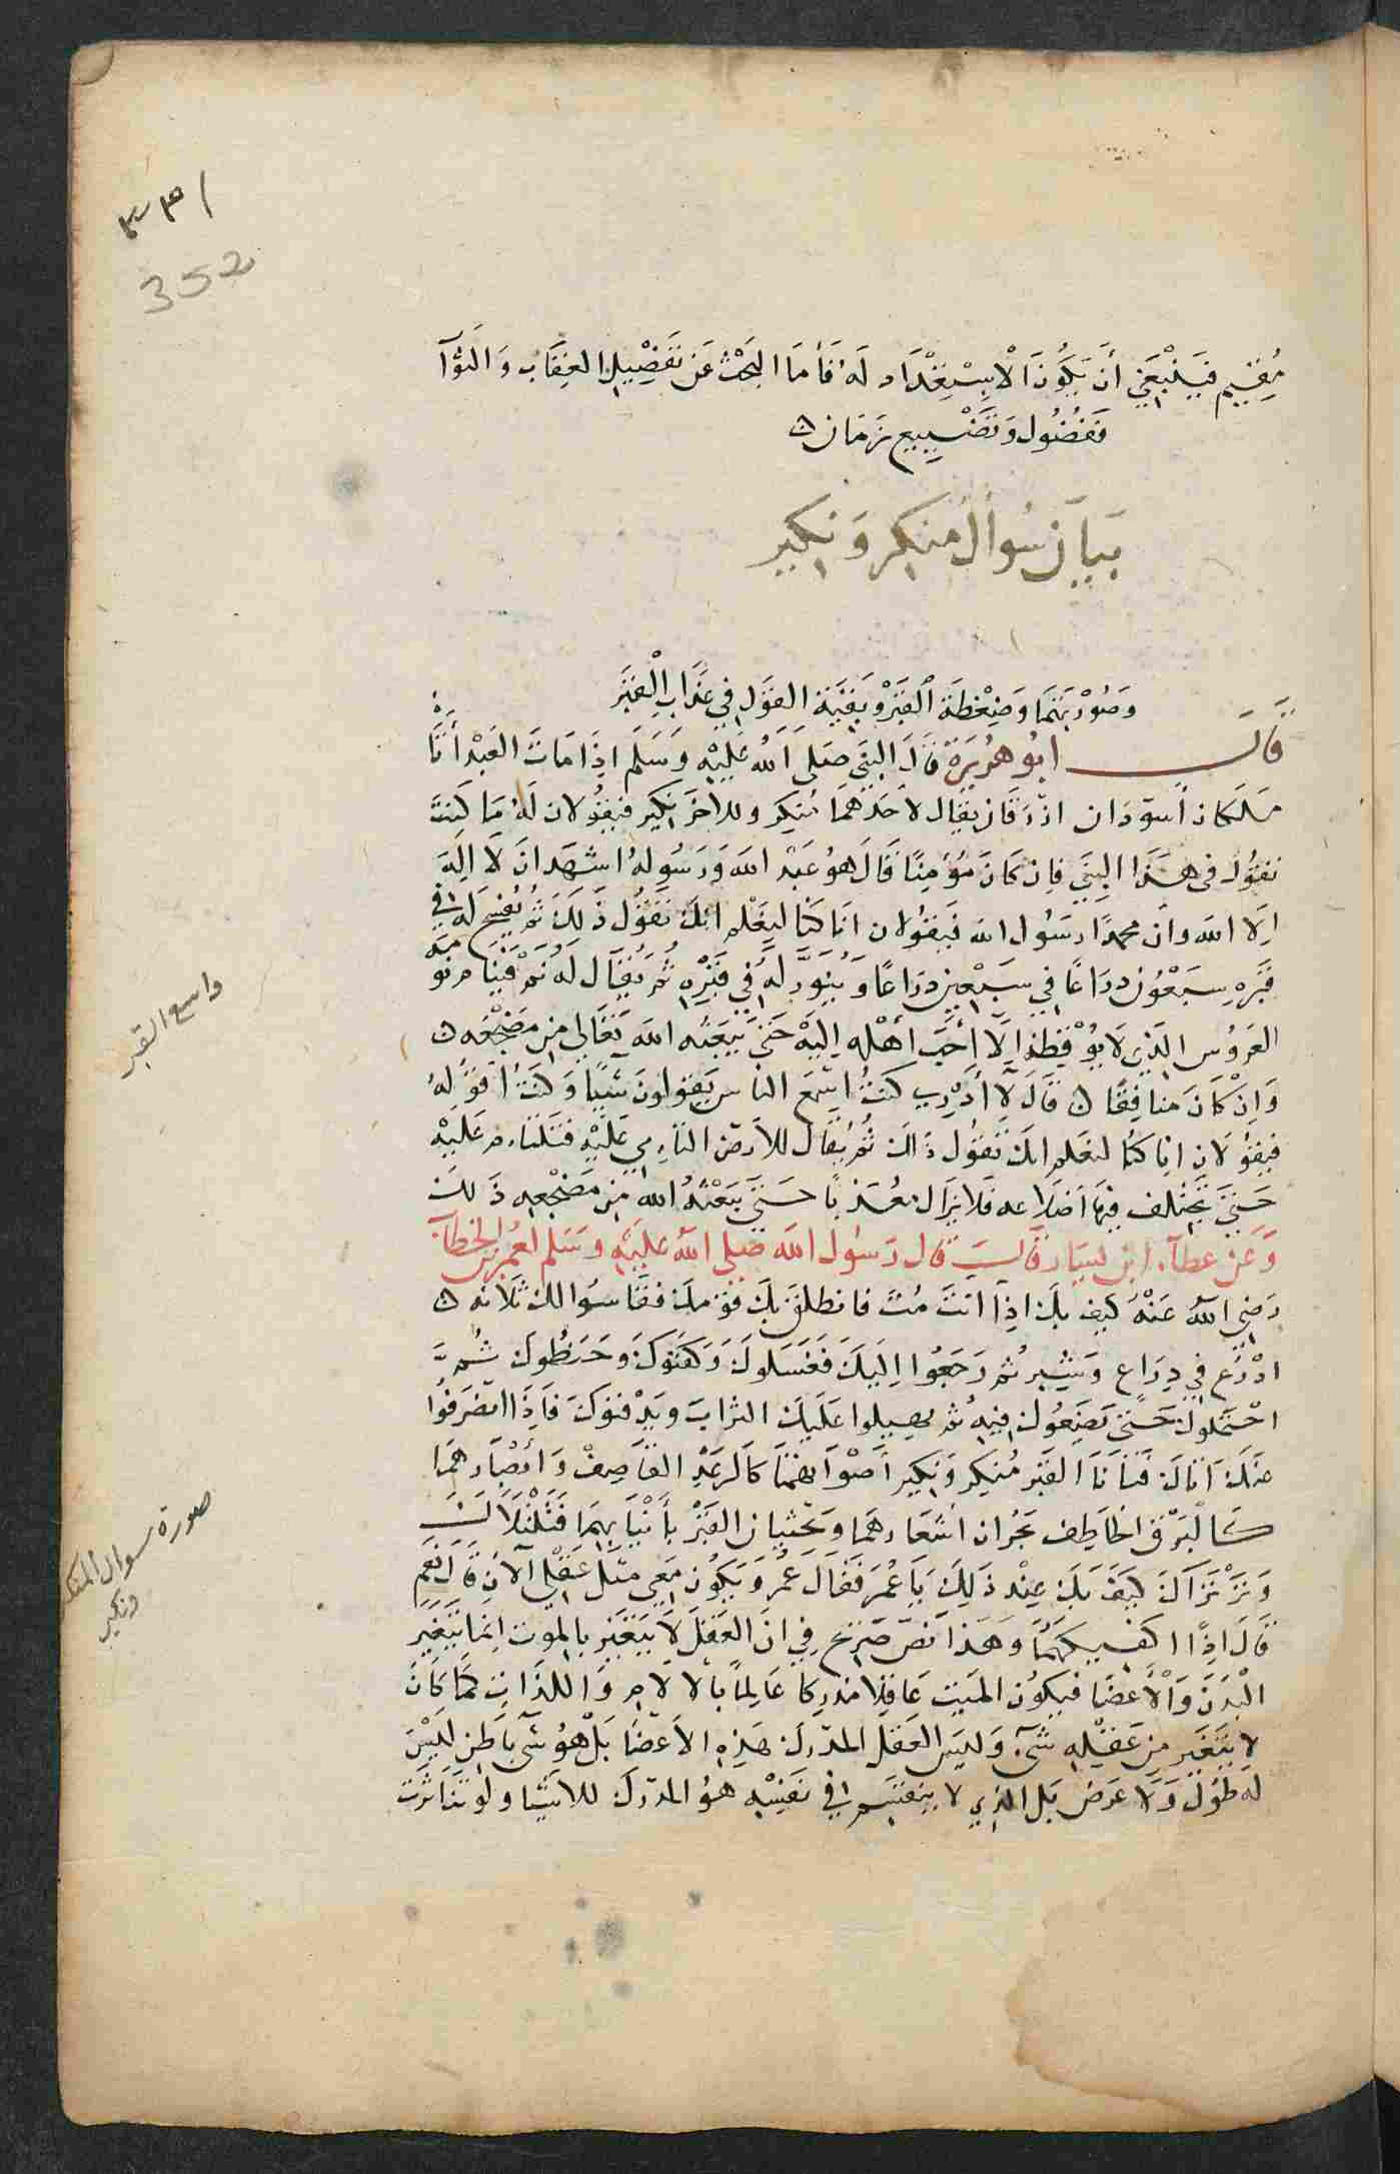 ٣٣١
352
مُقِيم فيَنْبَغي أن يَكُونَ الْاسْتِعْدَاد لَهُ فَأَمَا البَحْث عَن تَفصِيلِ العِقَاب وَالثوَآ
ففضُول وَتضْييع زمَان
بيَان سُوأل منكِر وَنكِير
وَصُوْرتهمَا وَضغْطَة القَبْر وَبَقيَة القَول في عَذاب الْقَبْر
قَال ابُو هُريَرَة قَال النبَي صَلى الله عَليْه وَسَلم اذَا مَاتَ العَبْد أتاه
مَلكان أسوَدان ازرقان يقال لاحَدهمَا مُنكِر وللاخر نكِير فيقُولان لهُ مَا كنتَ
تقُول في هَذا النبَي فان كانَ مُؤمِنًا قالَ هوُ عَبْد الله وَرَسُوله اشهَد ان لا اله
الا الله وان محمدًا رسُول الله فيَقولان انا كنا لنعْلم انك تقُول ذلكَ ثم يُفسح له في
قبْره سَبعُون ذراعًا في سَبْعين ذراعًا وَيُنوَّر لهُ في قبْره ثم يُقال له نم فينام نومَة
العَرُوس الذِي لا يُوْقظه الا أحَبّ أهْله اليْه حَتى يَبعَثه الله تعَالي من مَضجَعه
وَانْ كانَ منافقًا قالَ لا أدْرِي كنتُ اسْمَع الناس يَقولونَ شيًا وَكنتُ اقولهُ
فيقوُلان انا كنا لنعلم انك تقوُل ذالك ثم يُقال للأرض التامي عَليْه فتلتام عَليْه
حَتي تختلف فيهَا اضلاعه فلا يَزال معَذبًا حَتي يَبعْثهُ الله من مَضجَعه ذلك
وَعَن عطآء ابن يسَار قالَ قال رَسُول الله صَلي الله عَليْه وسَلم لعُمر بن الخطاب
رَضي اللهُ عَنْهُ كيف بك اذا أنتَ مُتَّ فانطلق بكَ قومك فقاسُوا لك ثلاثة
اذرُع في ذِرَاع وَشبْر ثم رَجَعُوا اليَكَ فغَسَلوكَ وَكفَنوكَ وَحَنطُوك ثم
احْتمَلوك حَتي يَضعُوك فيهِ ثم يهيلوا عَليك الترابَ ويَدْفنوكَ فاذا انصَرَفوا
عنك أتاك فتانا القبْر مُنكر وَنكير أصْواتهمَا كالرعْد القاصِف وَأبْصَارهمَا
كالبَرْق الخاطِف يَجُران أشعَارهمَا ويَحثيَان القبْر بأنيَابهمَا فتلتلاكَ
وَتَرْتَراكَ كيفَ بكَ عِنْد ذلكَ يَا عُمَر فقال عُمر وَيَكُون مَعي مثل عَقلي الآن قال نعَم
قالَ اذًا اكفيكهمَا وَهَذا نصّ صَريح في انّ العَقل لا يَتغيَر بالموت انمَا يَتغيَر
البَدنَ وَالأعضَا فيكوُن الميت عَاقلا مُدركا عَالمًا بالالام وَاللذات كمَا كانَ
لا يَتغيَر مِن عَقلِه شيء وَليسَ العَقل المدرك هَذِه الاعضَا بَل هُوَ شي بَاطن ليْسَ
لهُ طوُل وَلا عَرض بَل الذِي لا ينقسِم في نفسِه هُو المدرك للاشيَا ولو تناثرت
واسع القبر
صورة سوال المنكر
ونكير